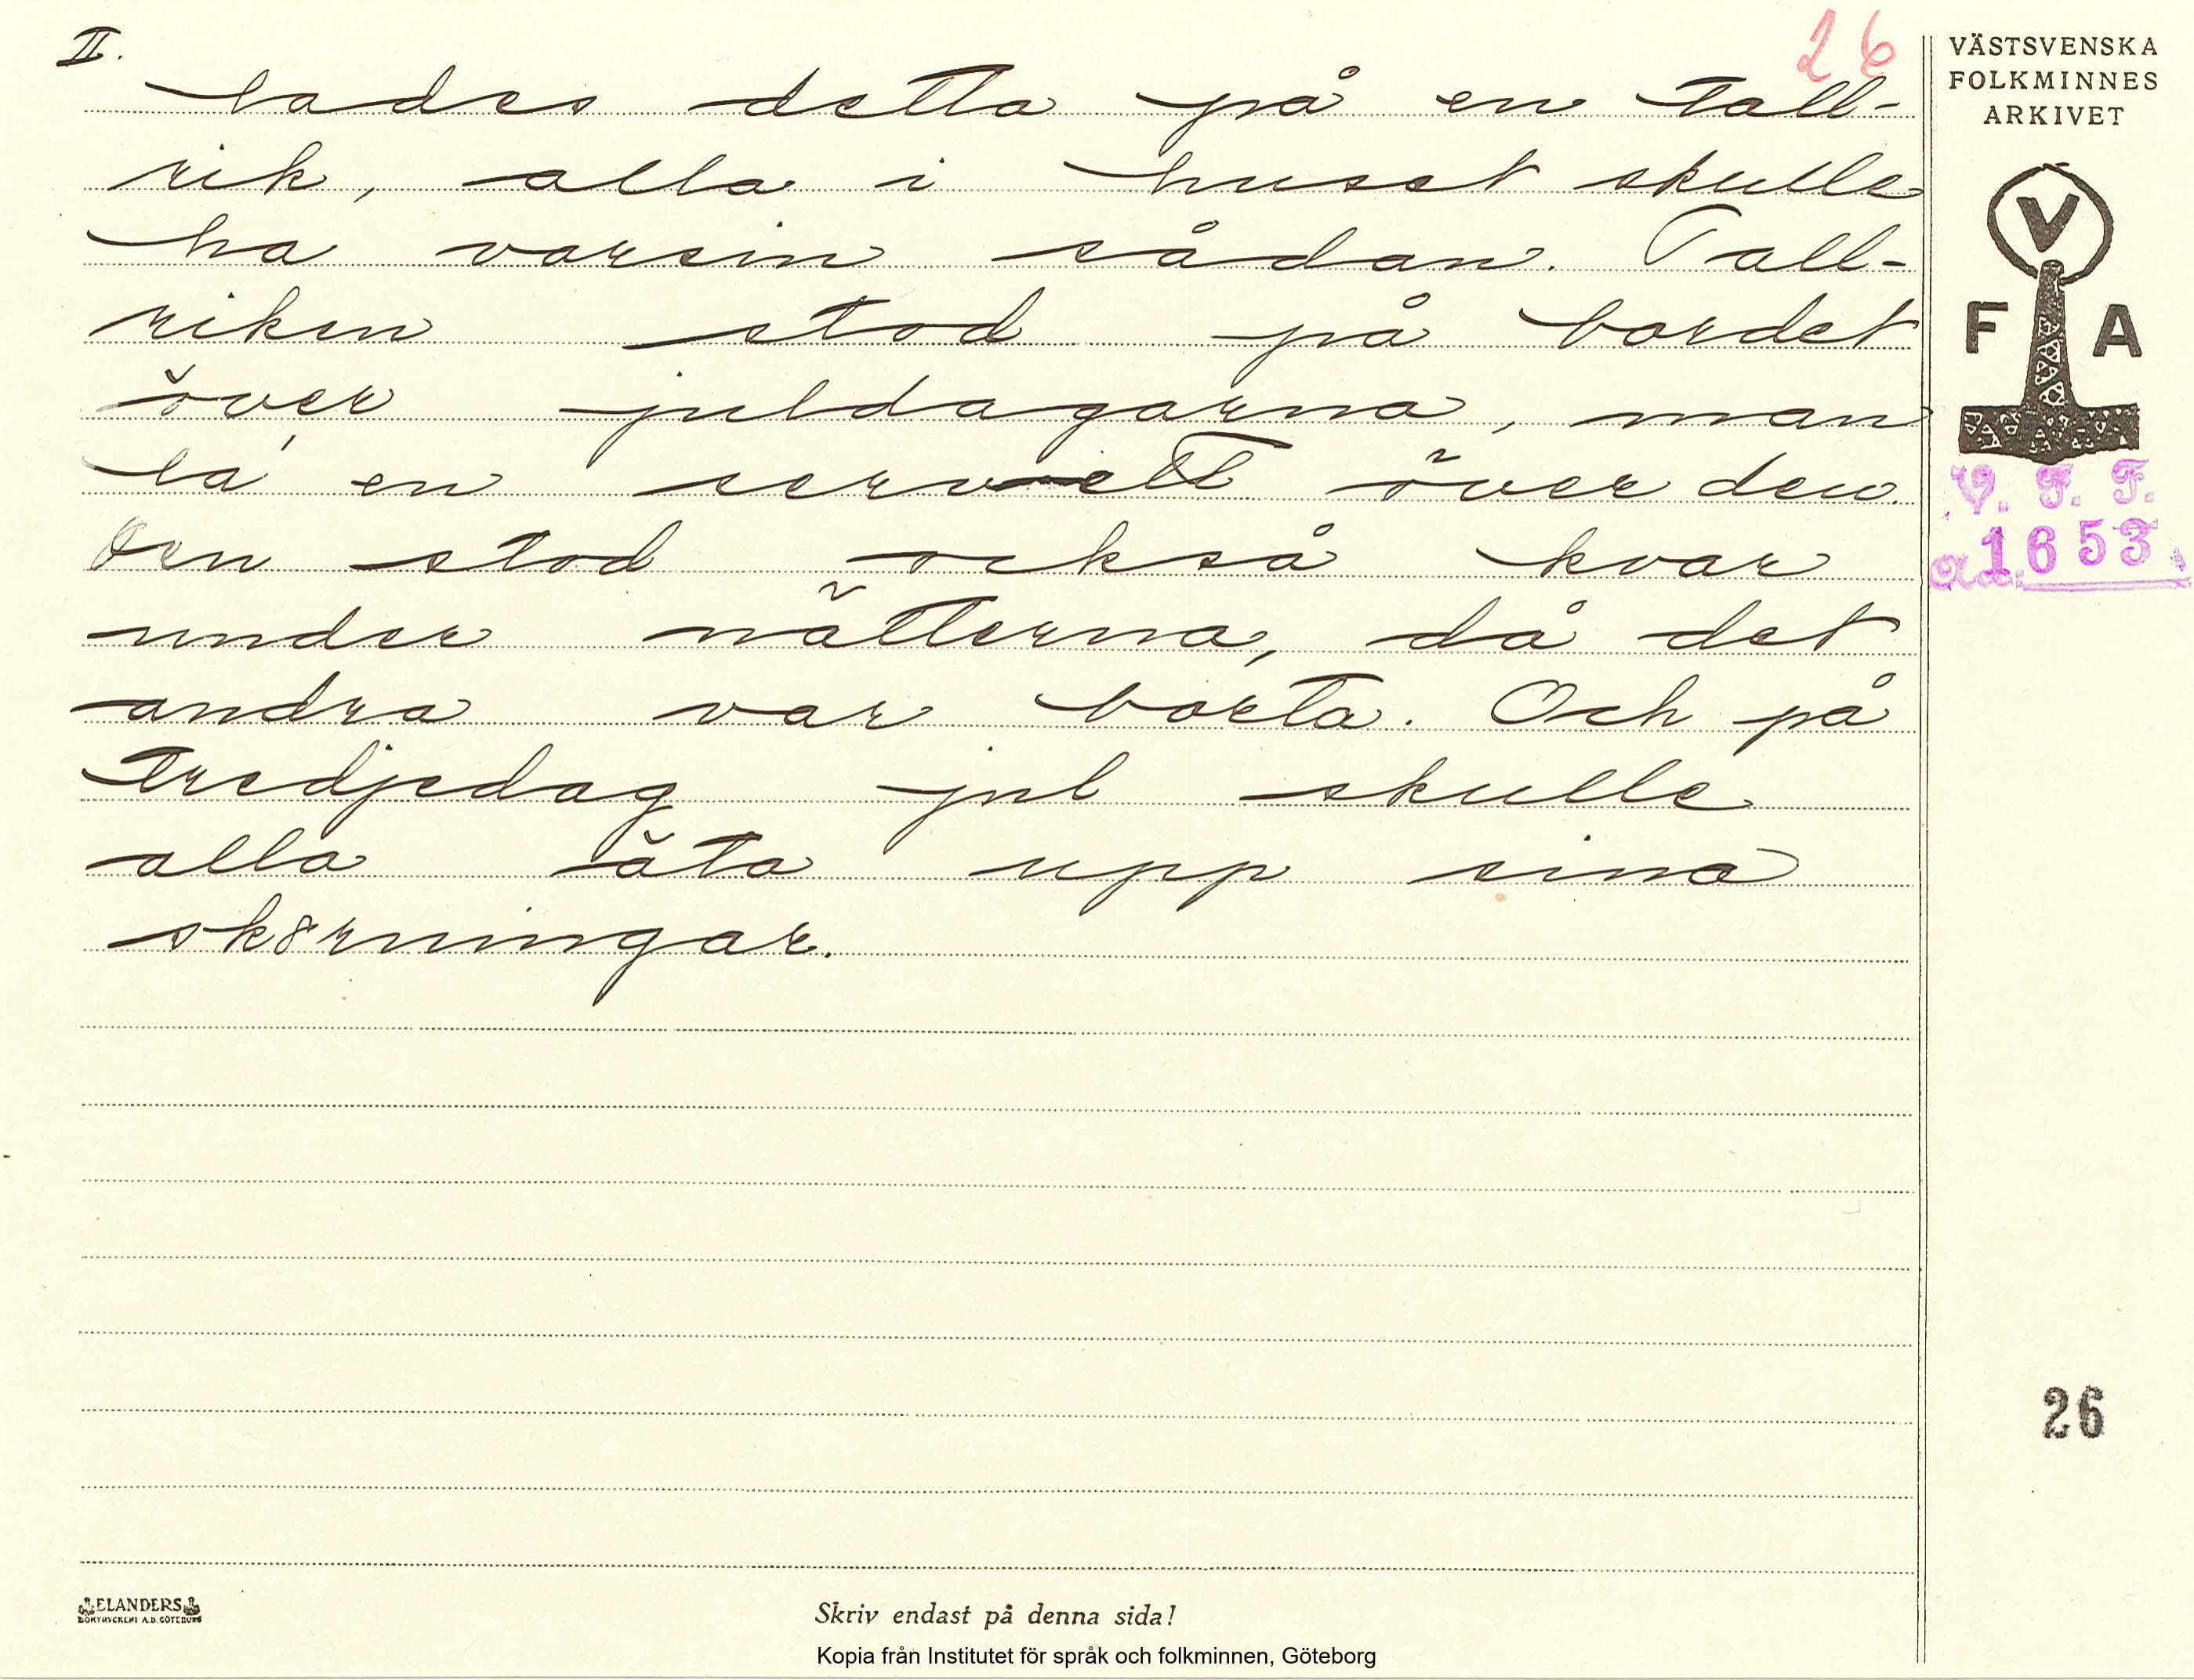 II.
26
lades detta på en tall-
rik, alla i huset skulle
ha varsin sådan. Tall-
riken stod på bordet
över juldagarna, man
la en servett över den
Den stod också kvar
under nätterna, då det
andra var borta. Och på
tredjedag jul skulle
alla äta upp sina
skörningar.
VÄSTSVENSKA
FOLKMINNES
ARKIVET
V
F A
V. F. F.
1653
26
ELANDERS
BOKTRYCKERI A.B. GÖTEBORG
Skriv endast på denna sida!
Kopia från Institutet för språk och folkminnen, Göteborg